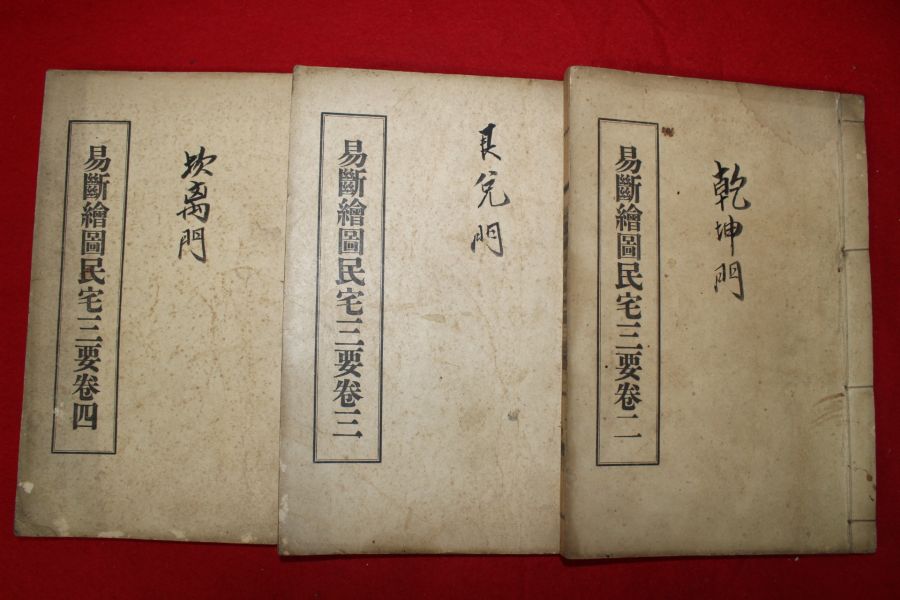 乾坤門
易斷繪圖民宅三要卷二
艮兌門
易斷繪圖民宅三要卷三
坎离門
易斷繪圖民宅三要卷四